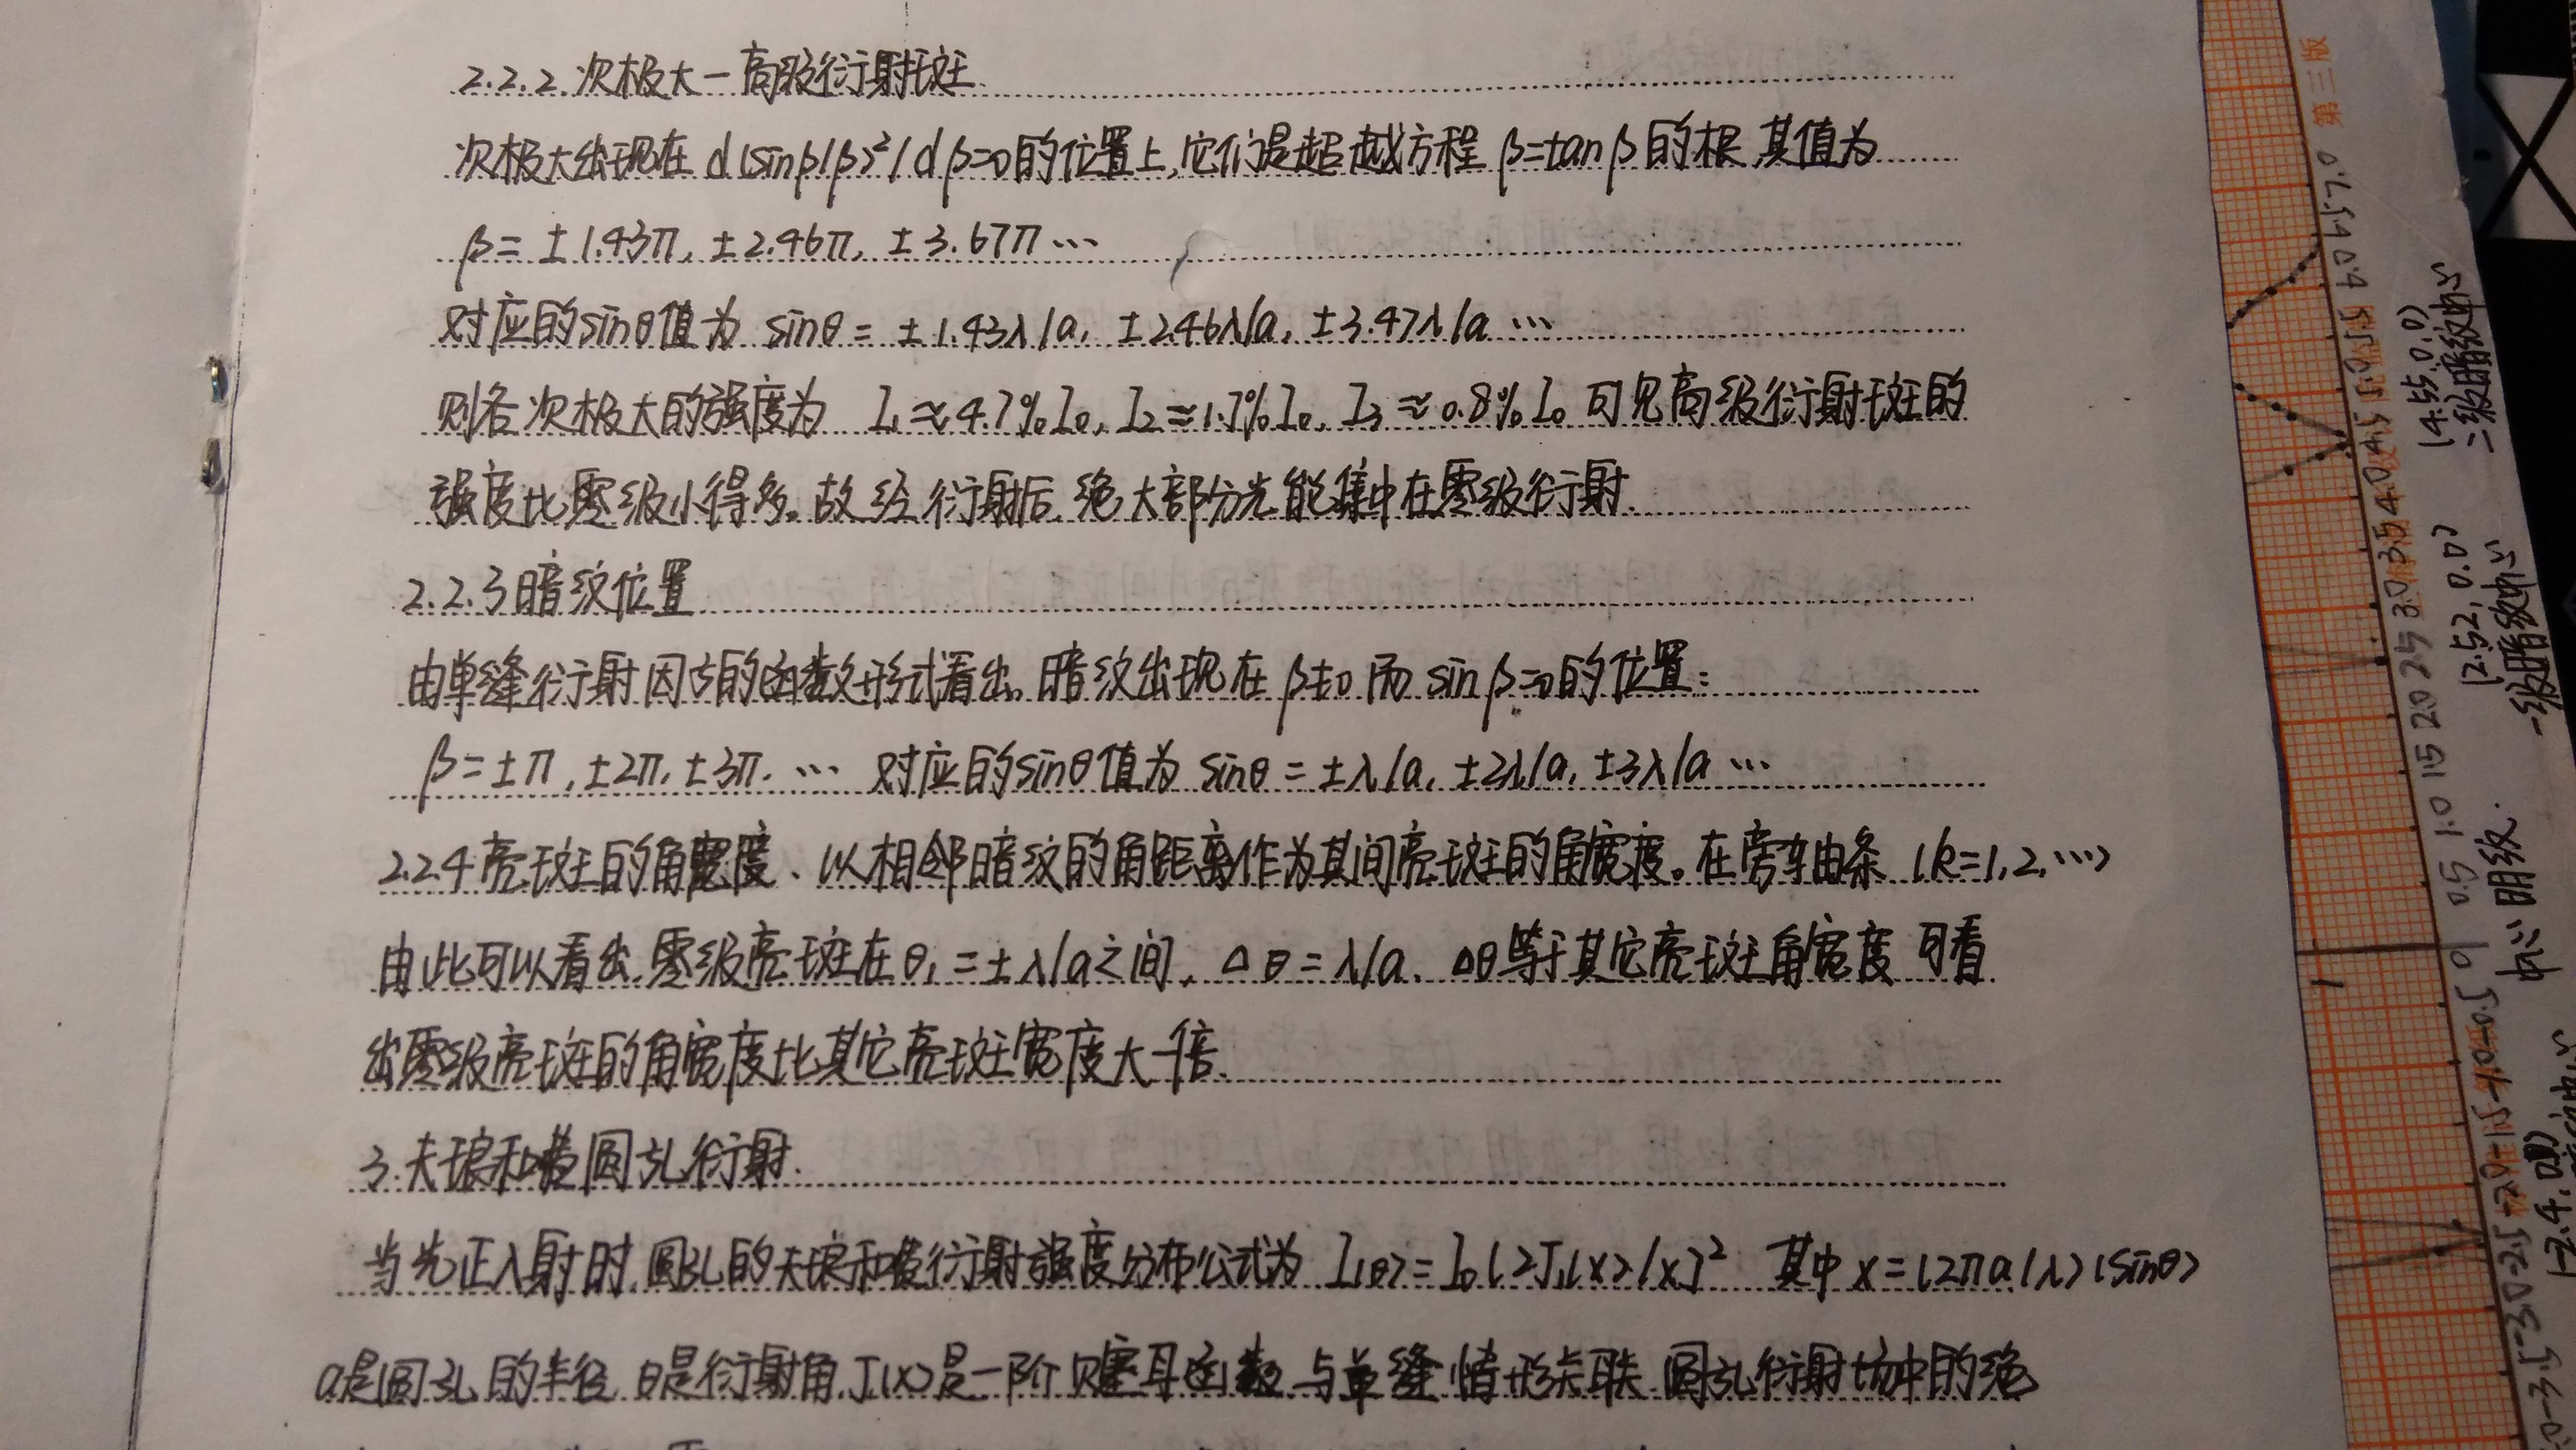 2.2.2.次极大一高级衍射斑
次极大出现在 d(sinβ/β)²/dβ=0的位置上,它们是超越方程 β=tanβ的根,其值为
β=±1.43π,±2.46π,±3.67π…
对应的sinθ值为 sinθ=±1.43λ/a,±2.46λ/a,±3.47λ/a…
则各次极大的强度为 I₁≈4.7%I₀,I₂≈1.7%I₀,I₃≈0.8%I₀ 可见高级衍射斑的
强度比零级小得多。故经衍射后,绝大部分光能集中在零级衍射.
2.2.3暗纹位置
由单缝衍射因子的函数形式看出,暗纹出现在β≠0而sinβ=0的位置:
β=±π,±2π,±3π.… 对应的sinθ值为 sinθ=±λ/a,±2λ/a,±3λ/a…
2.2.4亮斑的角宽度、以相邻暗纹的角距离作为其间亮斑的角宽度。在旁轴条 (k=1,2,…)
由此可以看出,零级亮斑在θ₁=±λ/a之间,Δθ=λ/a.Δθ等于其它亮斑角宽度 可看
出零级亮斑的角宽度比其它亮斑宽度大一倍.
3.夫琅和费圆孔衍射.
当光正入射时,圆孔的夫琅和费衍射强度分布公式为 I(θ)=I₀(2J₁(x)/x)² 其中x=(2πa/λ)(sinθ)
a是圆孔的半径,θ是衍射角,J(x)是一阶贝塞耳函数,与单缝情形类联,圆孔衍射场中的绝
第三版
(4.55,0.0)
二级暗纹中心
(2.52,0.0)
一级暗纹中心
中心明纹.